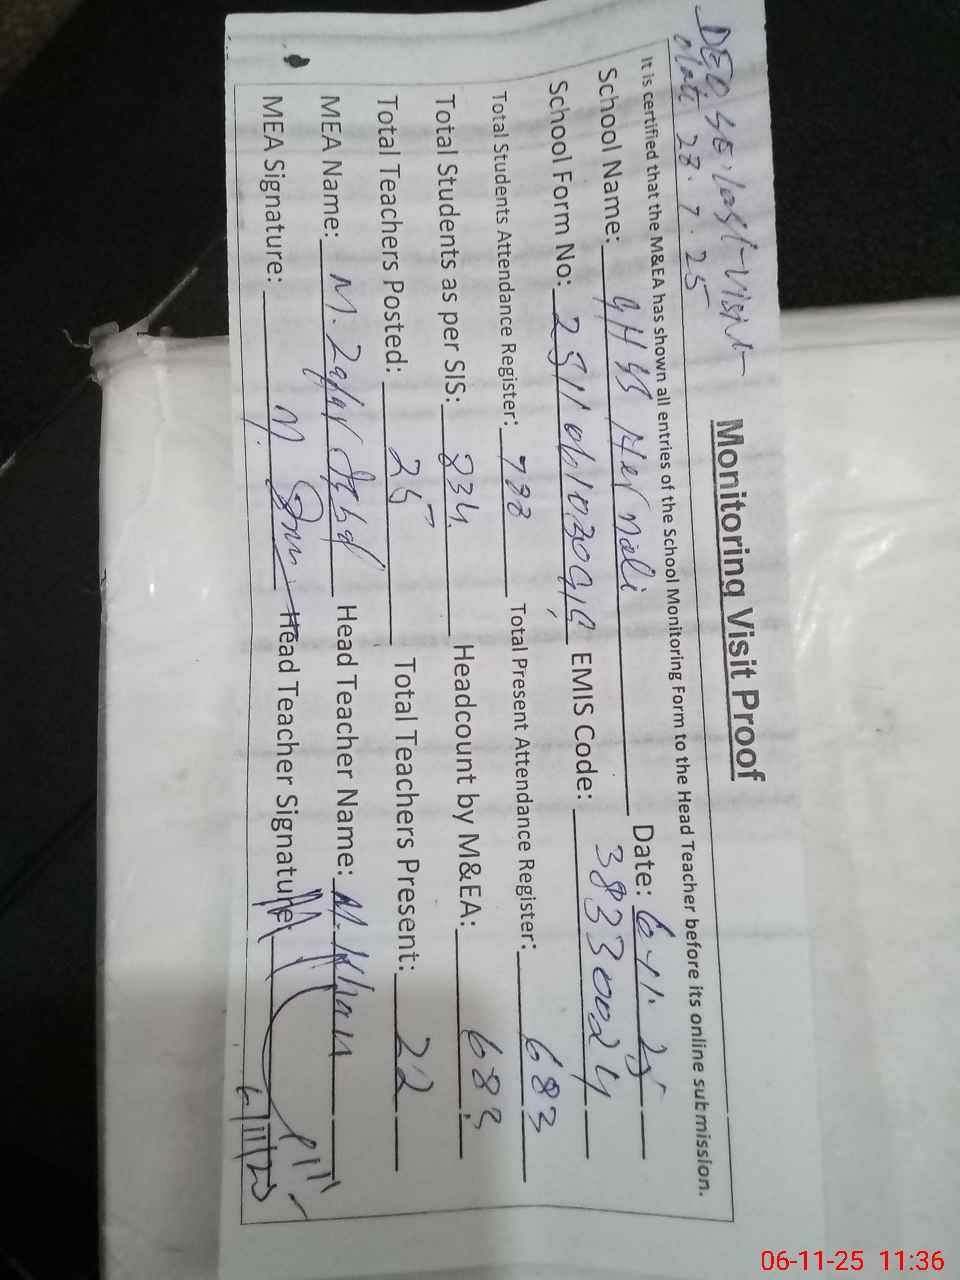 DEO, SE, last visit
28.7.25
Monitoring Visit Proof
It is certified that the M&EA has shown all entries of the School Monitoring Form to the Head Teacher before its online submission.
School Name: Date: 6.11.25
School Form No: EMIS Code: 38330024
Total Students Attendance Register: 788 Total Present Attendance Register: 683
Total Students as per SIS: 834 Headcount by M&EA: 683
Total Teachers Posted: 25 Total Teachers Present: 22
MEA Name: M. Zafar Head Teacher Name: M. Khan
MEA Signature: Head Teacher Signature:
6/11/25
06-11-25 11:36